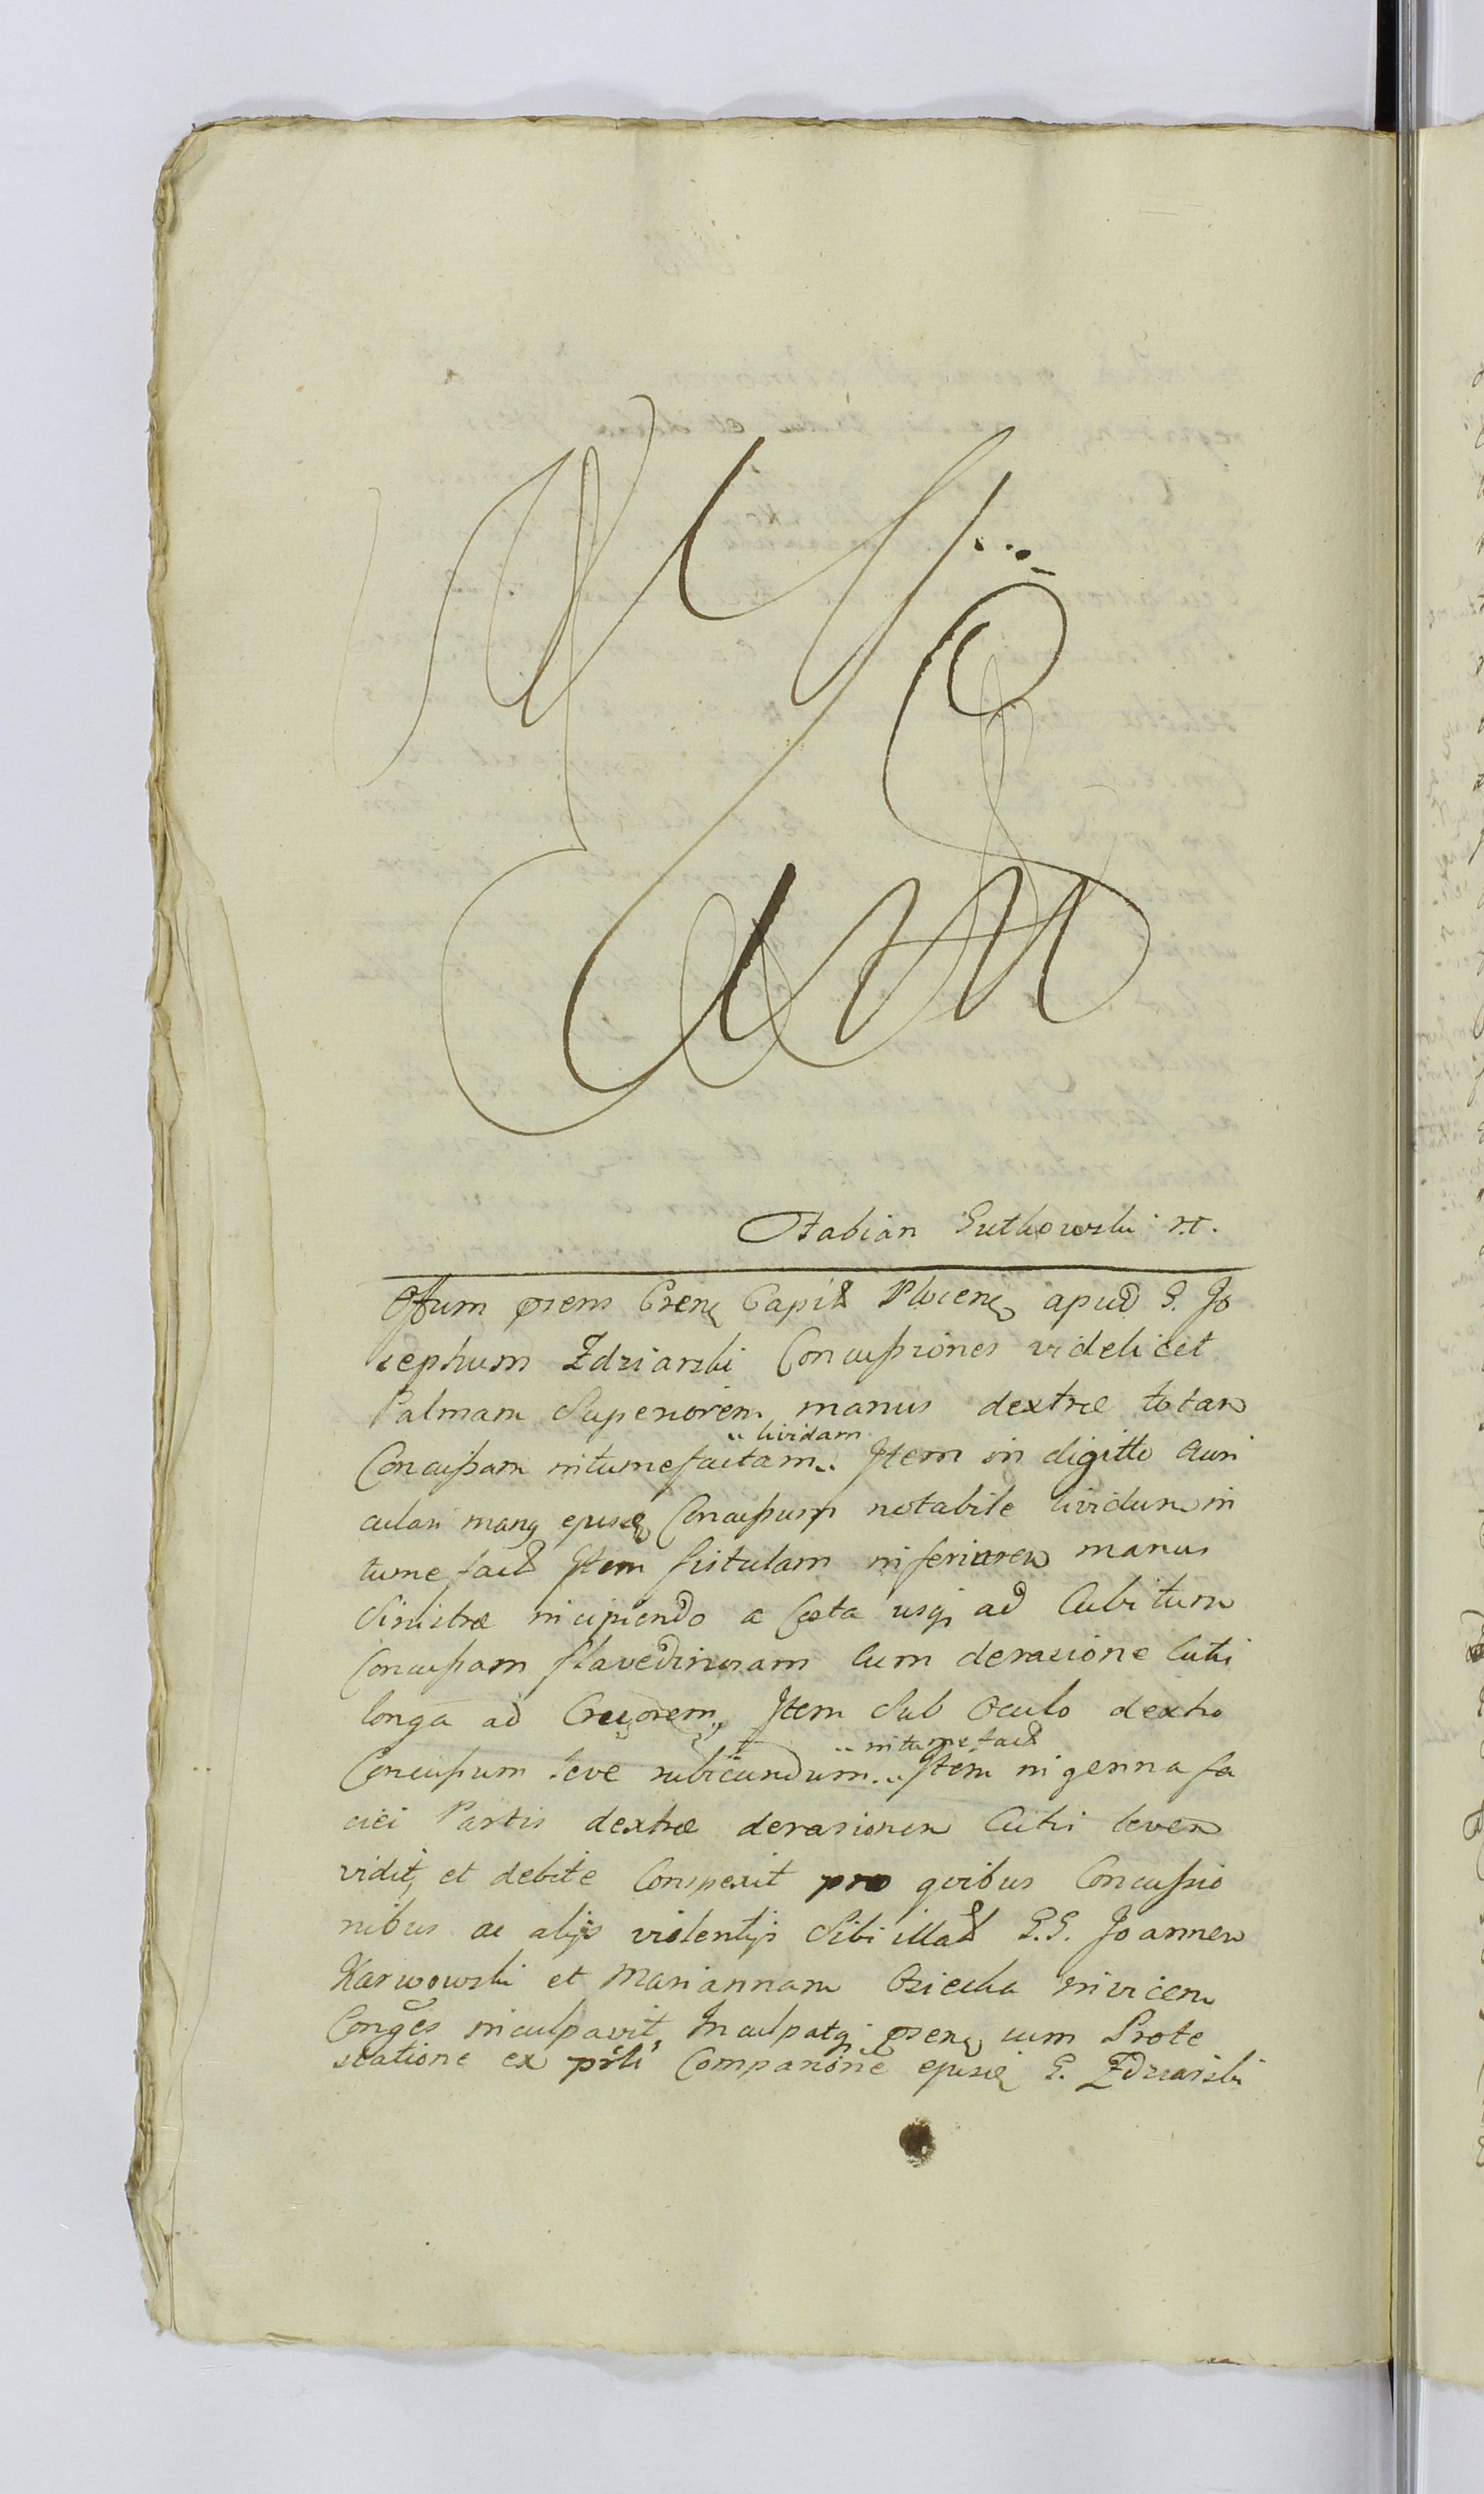 Fabian Gutkowski
Offum prens Crens Capit Plocens apud G. Jo
sephum Zdziarski Concussiones videlicet
Palmam Superiorem manus dextræ totam
Concussam intumefactam.. Item in digitto Auri
.. lividam
culari manq ejusq Concussum notabile lividum in
tumefact Item fistulam inferiorem manus
Sinistræ incipiendo a Costa usq ad Cubitum
Concussam flavedinosam Cum derasione Cutis
longa ad Cruorem, Item Sub Oculo dextro
Concussum leve rubicundum... Item in genna fa
.. intumefact
ciei Partis dextræ derasionem Cutis levem
vidit, et debite Conspexit pro quibus Concussio
nibus ac alijs violentijs Sibi illat G.G. Joannem
Karwowski et Mariannam Osiecka invicem
Conges inculpavit, Inculpatq prens cum Prote
statione ex Comparitione ejusq G. Zdziarski